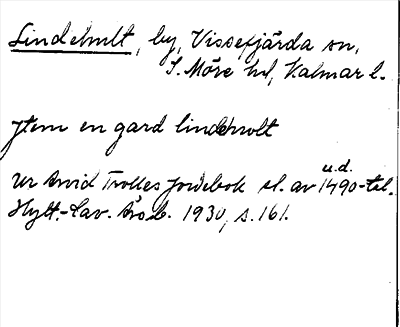 Lindehult, by, Vissefjärda sn,
S. Möre hd, Kalmar l.
Jtem en gard lindervolt
u.d.
Ur Arvid Trolles jordebok sl. av 1490-tal.
Hylt.-Cav. årsb. 1930, s. 161.